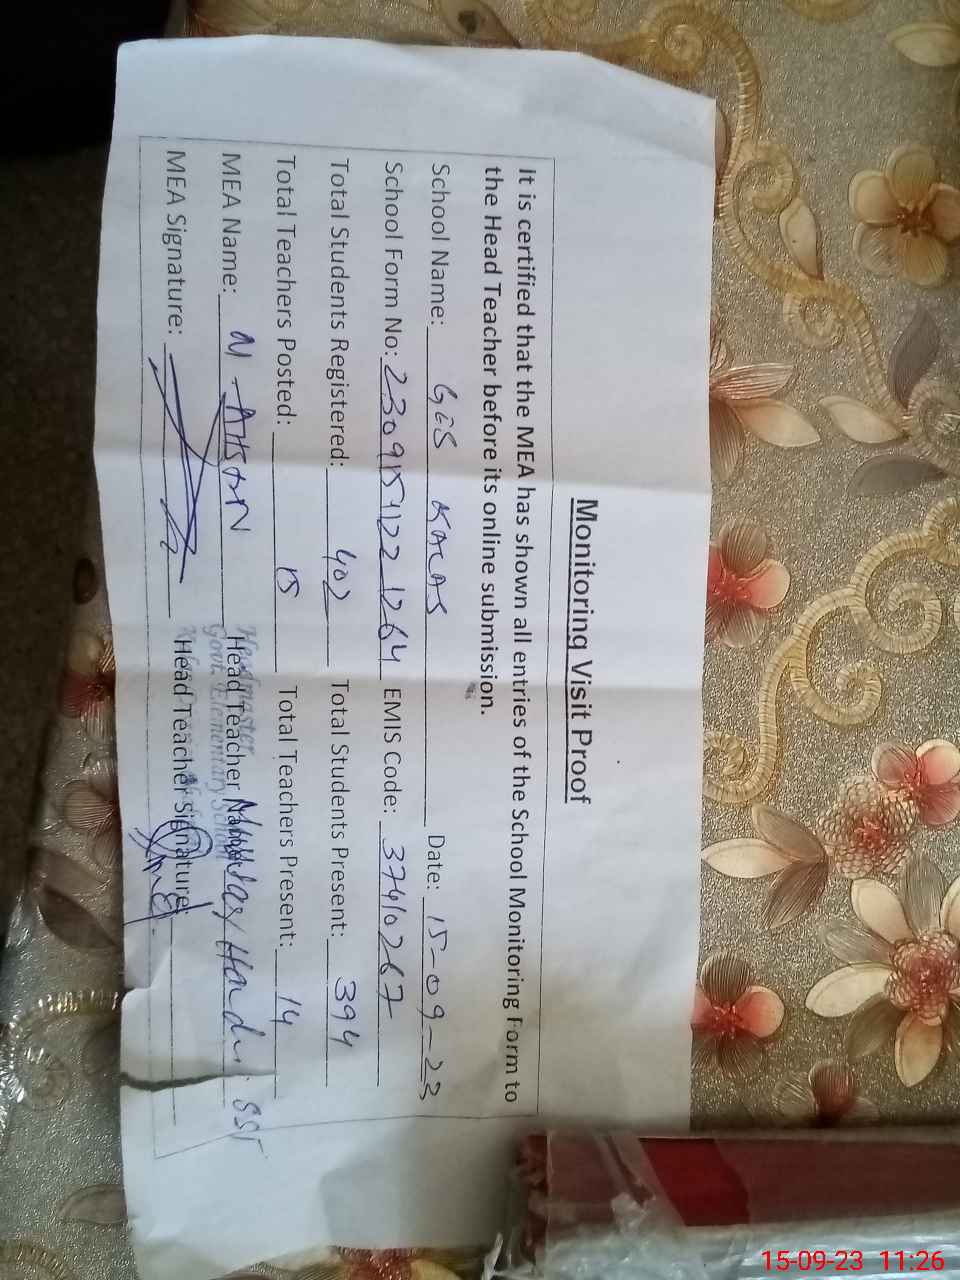 Monitoring Visit Proof
It is certified that the MEA has shown all entries of the School Monitoring Form to
the Head Teacher before its online submission.
School Name: GES Date: 15-09-23
School Form No: 2309154122 1264 EMIS Code: 37410267
Total Students Registered: 402 Total Students Present: 394
Total Teachers Posted: 15 Total Teachers Present: 14
MEA Name: M AHSAN Head Teacher Name SST
Headmaster
Govt. Elementary School
MEA Signature: Head Teacher Signature:
15-09-23 11:26